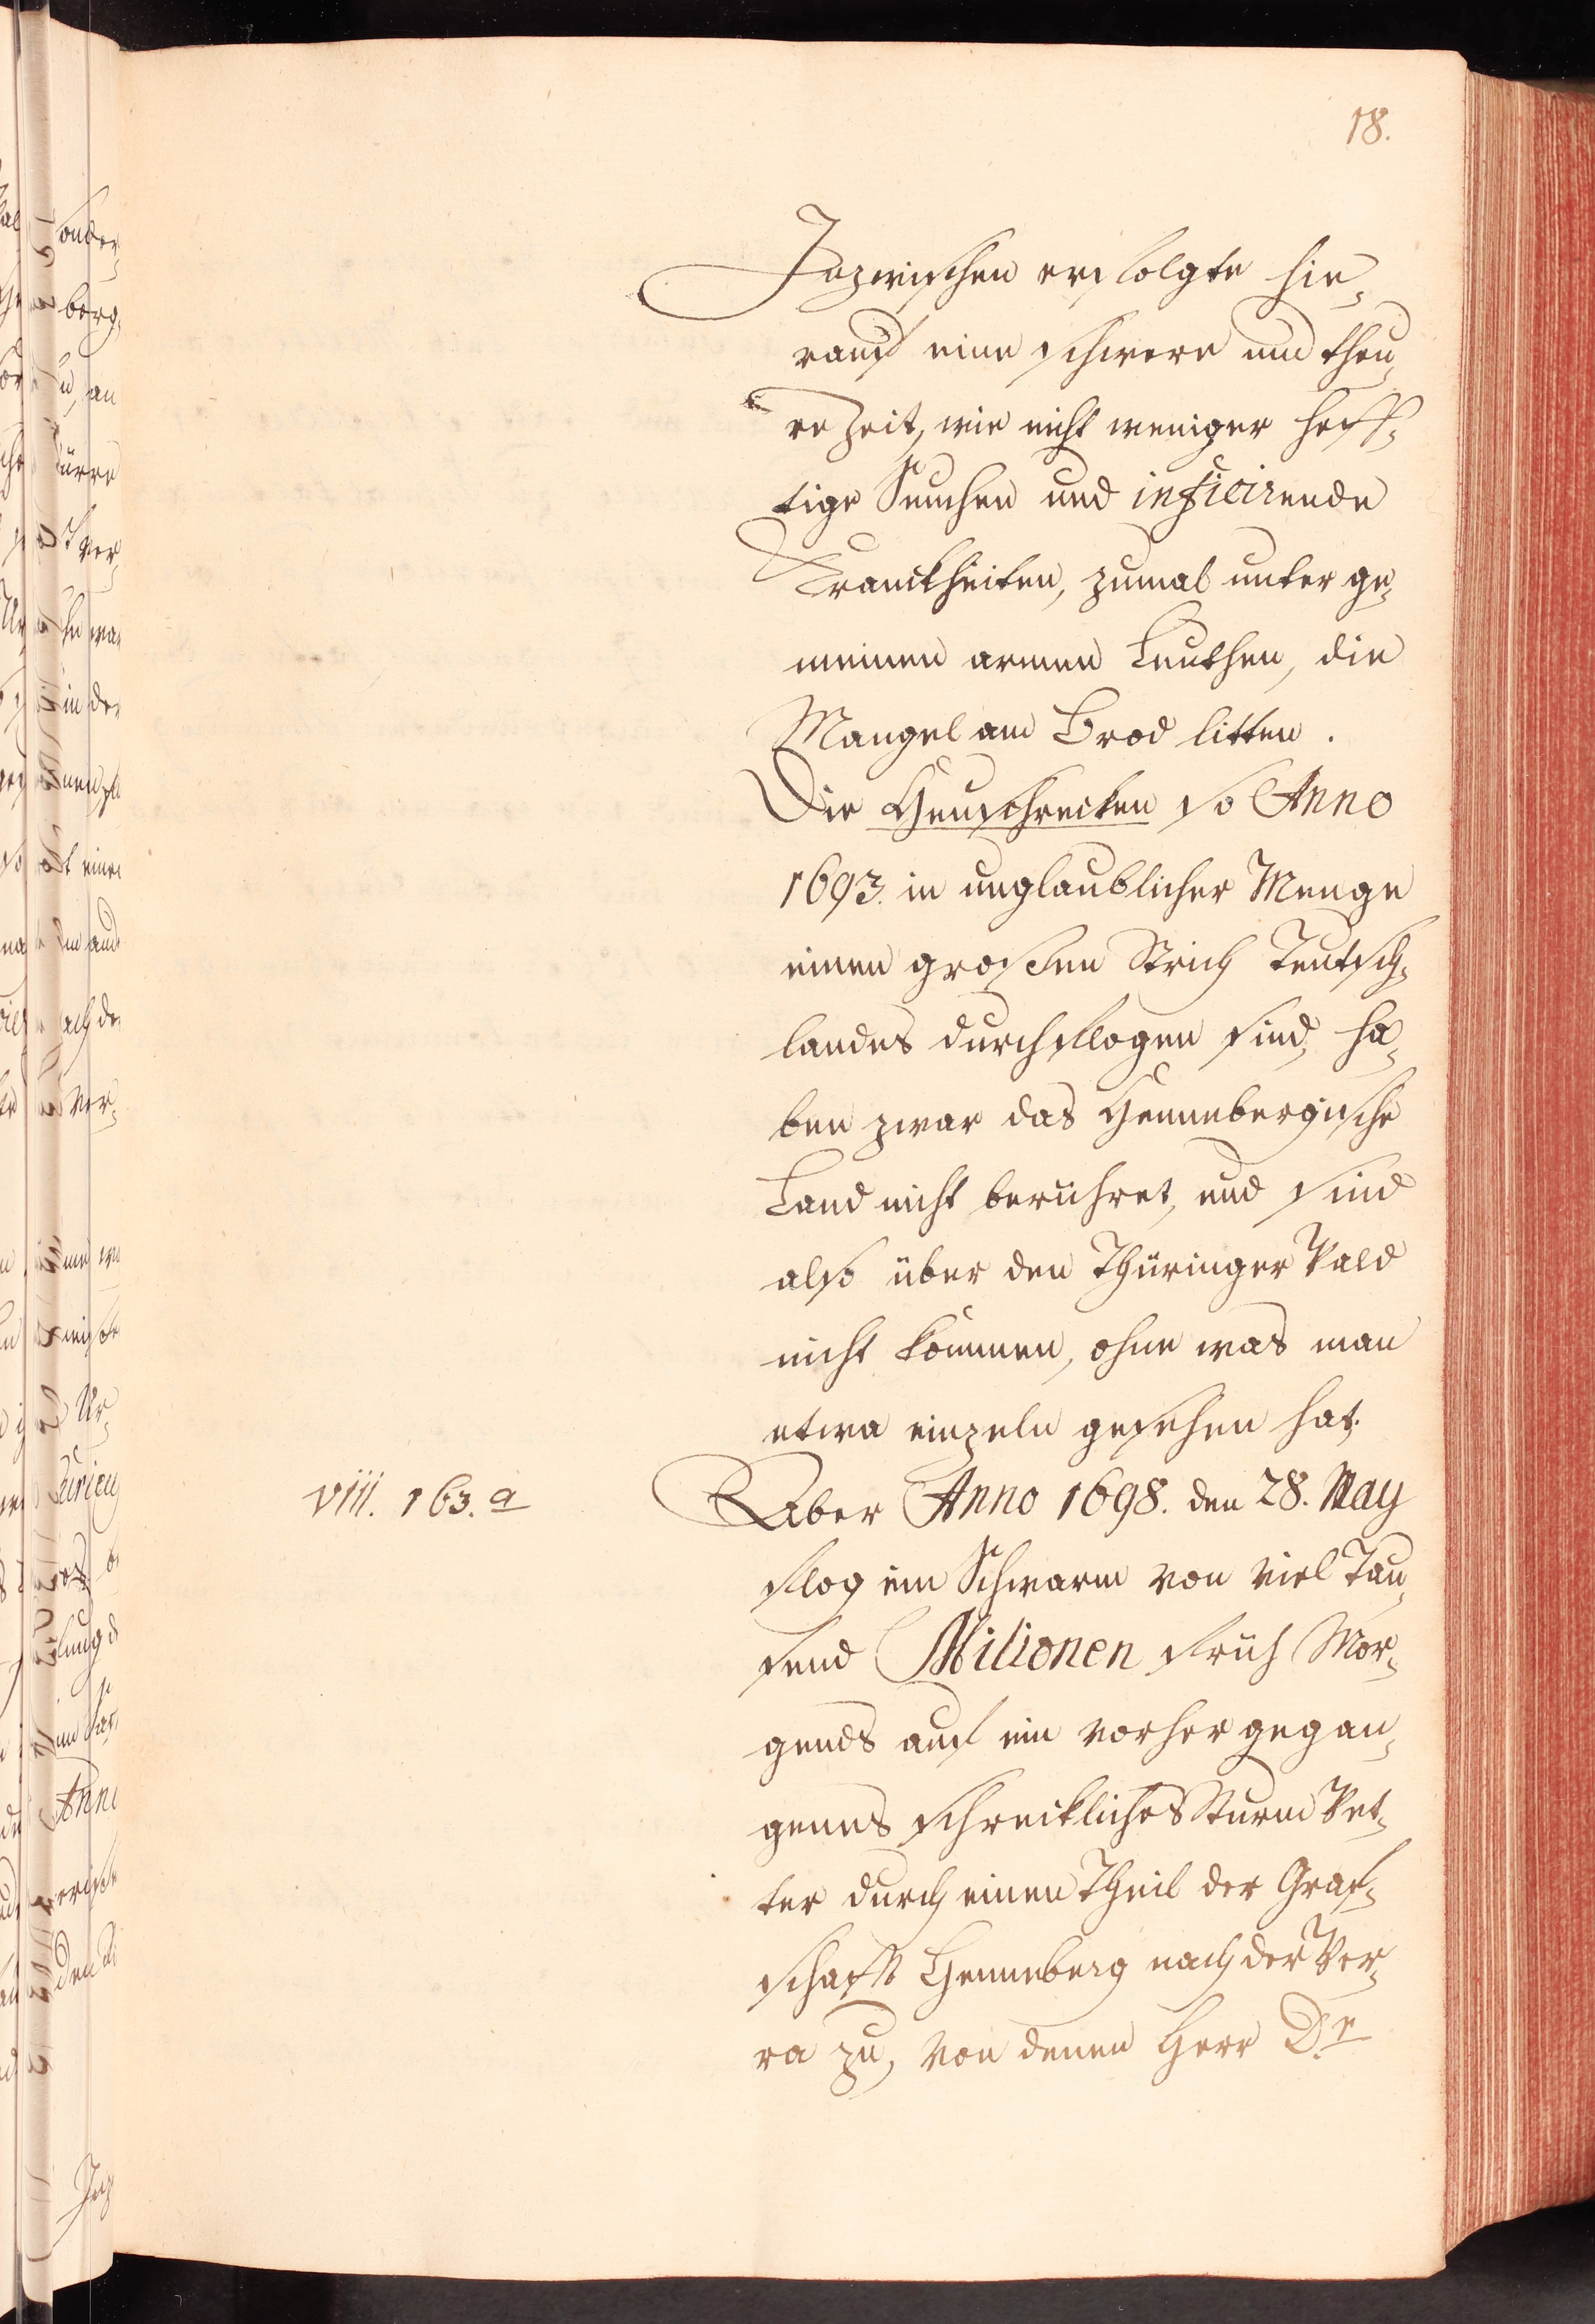 18.
Inzwischen erfolgte hie¬
rauf eine schwere und theu¬
re Zeit, wie nicht weniger heff¬
tige Seuchen und inficirende
Kranckheiten, zumal unter ge¬
meinen armen Leuthen, die
Mangel am Brod litten.
Die Heuschrecken so Anno
1693. in unglaublicher Menge
einen großen Strich Teutsch¬
landes durchflogen sind, ha¬
ben zwar das Hennebergische
Land nicht berühret, und sind
also über den Thüringer Wald
nicht kommen, ohne was man
etwa einzeln gesehen hat.
viii. 163. a
Aber Anno 1698. den 28. May
flog ein Schwarm von viel Tau¬
send Milionen früh Mor¬
gends auf ein vorher gegan¬
genes schreckliches Sturm Wet¬
ter durch einen Theil der Graf¬
schafft Henneberg nach der Wer¬
ra zu, von denen Herr Dr